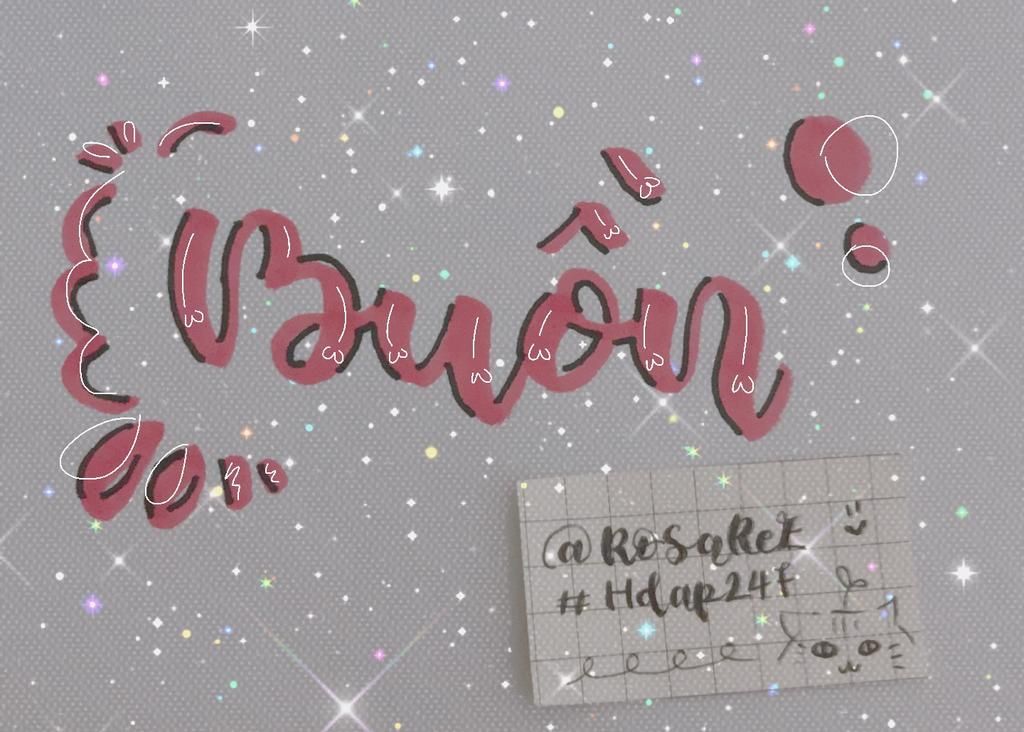 Buồn
@RoSaReE
#Hdap24f